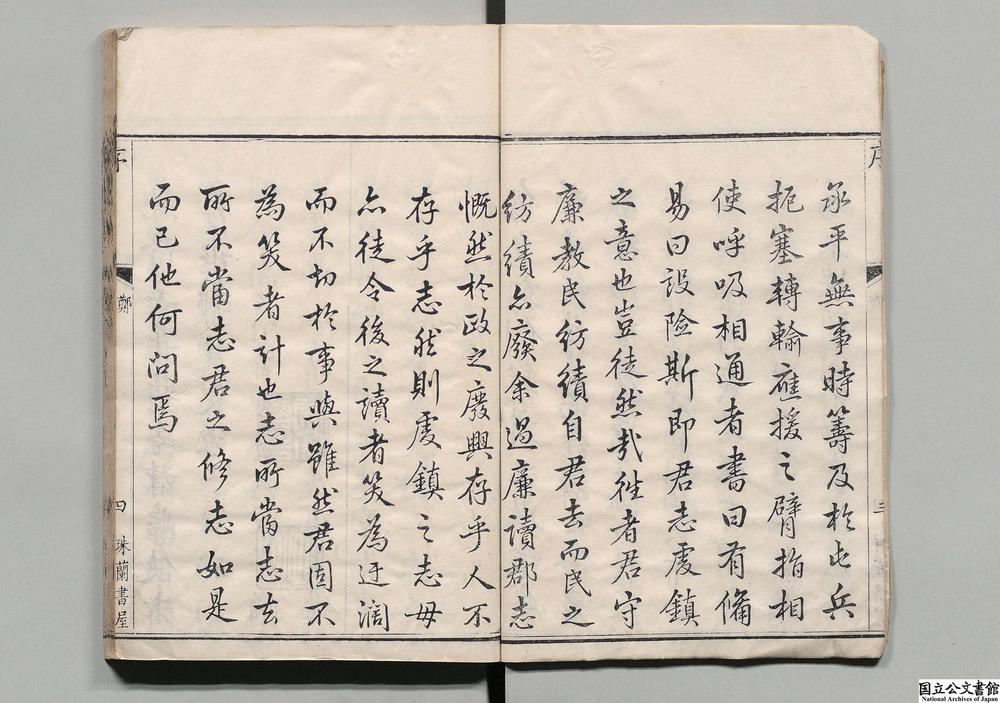 序
三
承平無事時籌及於屯兵
扼塞轉輸應援之臂指相
使呼吸相通者書曰有備
易曰設險斯即君志虔鎮
之意也豈徒然哉徃者君守
廉教民紡績自君去而民之
紡績亦廢余過廉讀郡志
慨然於政之廢興存乎人不
存乎志然則虔鎮之志毋
亦徒令後之讀者笑為迂濶
而不切於事與雖然君固不
為笑者計也志所當志去
所不當志君之修志如是
而已他何問焉
序
鄭
四
珠蘭書屋
国立公文書館
National Archives of Japan